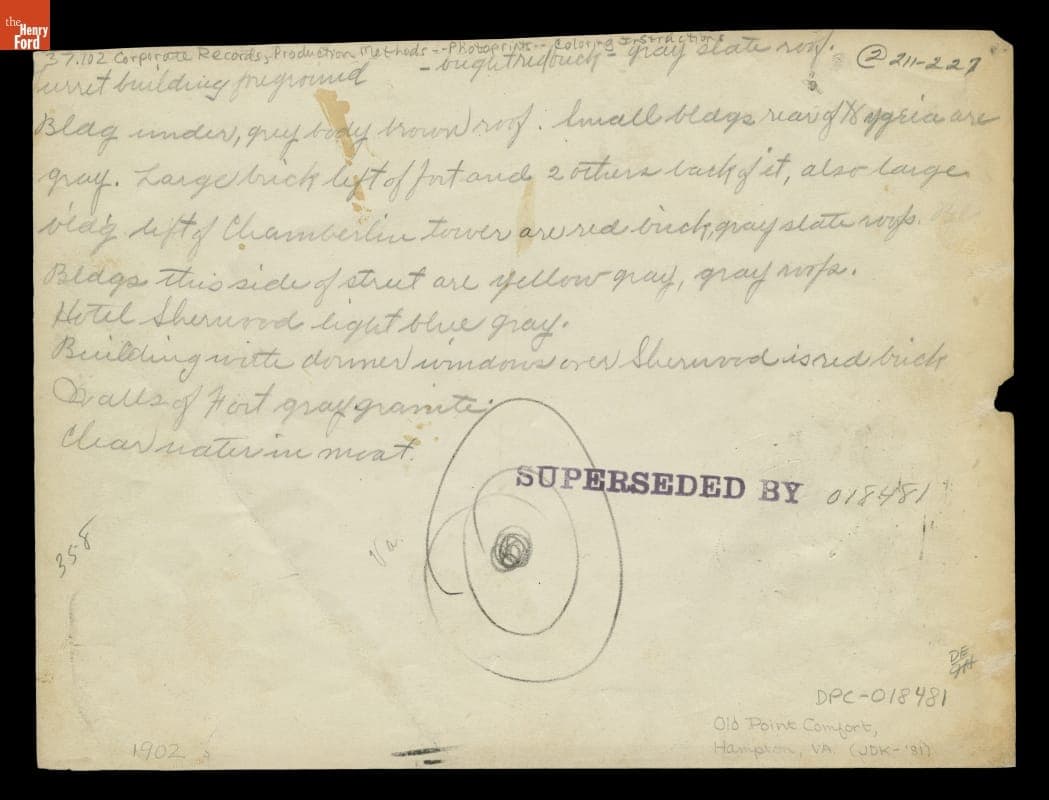 the
Henry
Ford
37.102 Corporate Records, Production Methods--Photoprints--Coloring Instructions
- bright red brick - gray slate roof.
② 211-227
urret building foreground
Bldg under, grey body brown roof. Small bldgs rear of Hygeia are
gray. Large brick left of fort and 2 others back of it, also large
bldg left of Chamberlin tower are red brick, gray slate roofs.
Bldgs this side of street are yellow gray, gray roofs.
Hotel Sherwood light blue gray.
Building with dormer windows over Sherwood is red brick
Walls of Fort gray granite.
Clear water in moat.
SUPERSEDED BY 018481
358
Va.
DE
DPC-018481
Old Point Comfort,
Hampton, VA. (JDK-'81)
1902